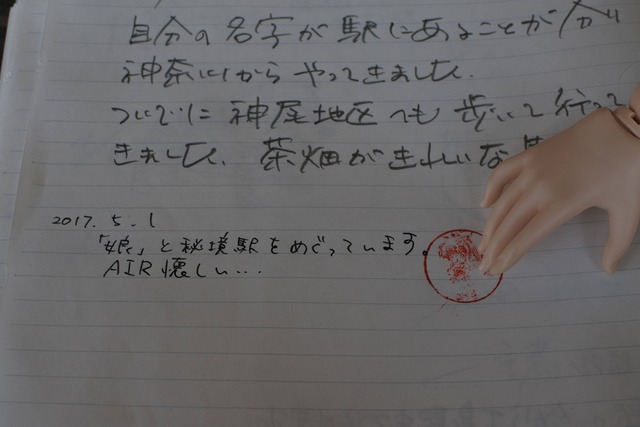 自分の名字が駅にあることが分り
神奈川からやってきました.
ついでに神尾地区へも歩いて行って
きました. 茶畑がきれいな
2017.5.1
「娘」と秘境駅をめぐっています。
AIR懐しい...